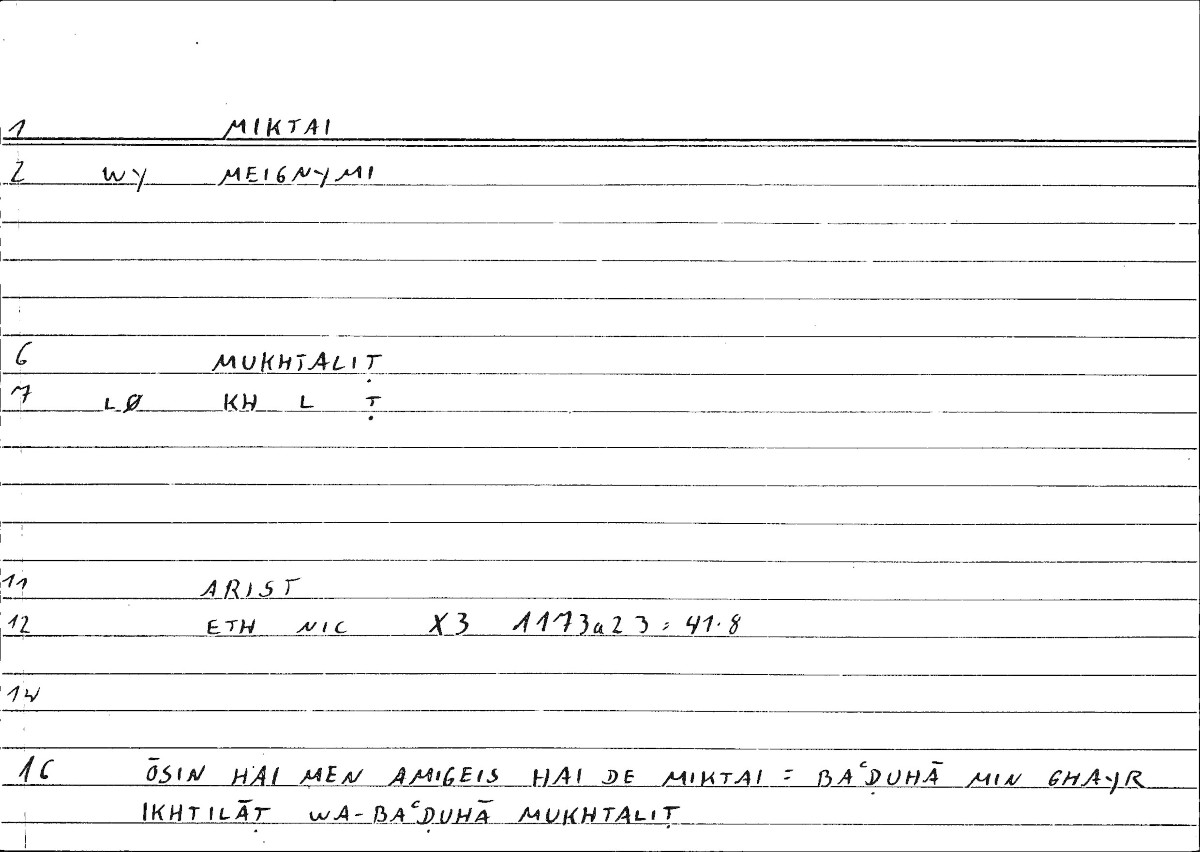 1 MIKTAI
2 WY MEIGNYMI
6 MUKHTALIṬ
7 LØ KH L Ṭ
11 ARIST
12 ETH NIC X3 1173a23 : 41.8
14
16 ŌSIN HAI MEN AMIGEIS HAI DE MIKTAI = BAʿḌUHĀ MIN GHAYR
IKHTILĀṬ WA-BAʿḌUHĀ MUKHTALIṬ